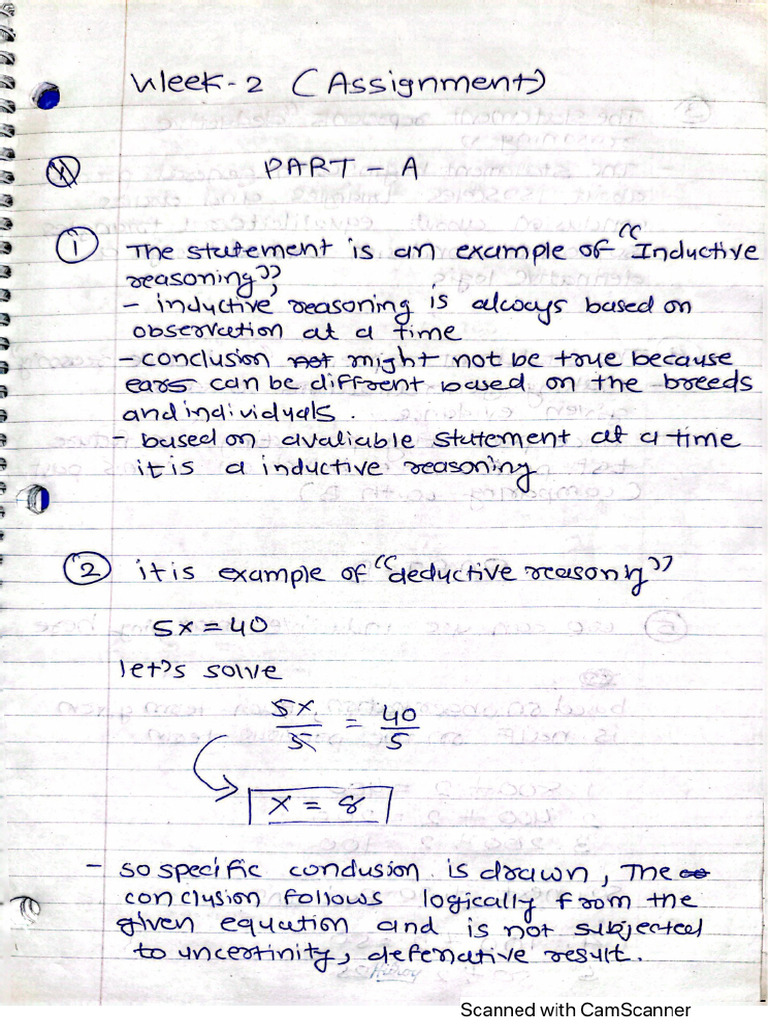 Week-2 (Assignment)
PART - A
① The statement is an example of "Inductive
reasoning",
- inductive reasoning is always based on
observation at a time
- conclusion might not be true because
ears can be different based on the breeds
and individuals.
- based on avaliable statement at a time
it is a inductive reasoning
② it is example of "deductive reasoning"
5x = 40
let's solve
5x/5 = 40/5
x = 8
- so specific conclusion is drawn, The
conclusion follows logically from the
given equation and is not subjected
to uncertinity, defenative result.
Hilroy
Scanned with CamScanner